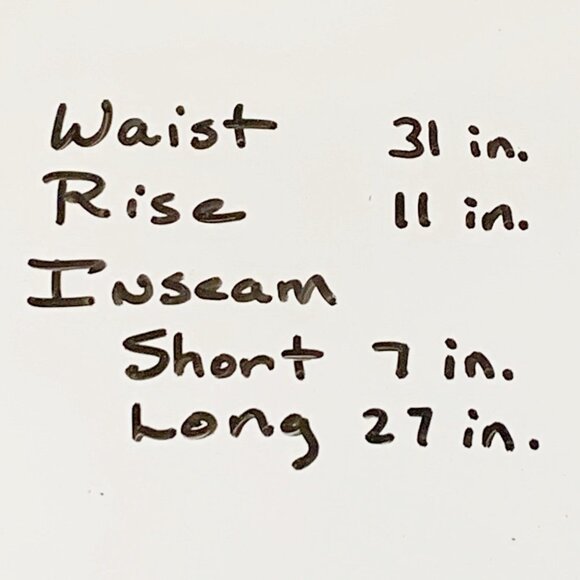 Waist 31 in.
Rise 11 in.
Inseam
Short 7 in.
Long 27 in.